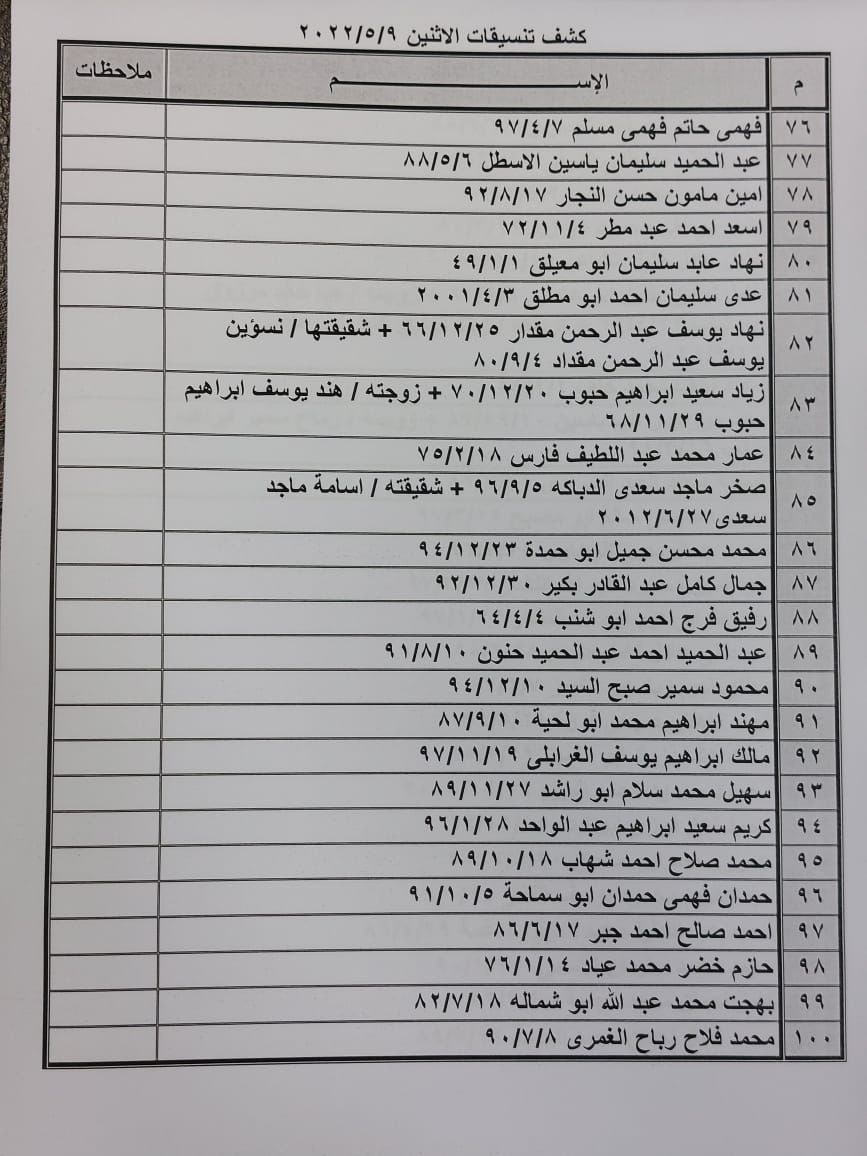 كشف تنسيقات الاثنين ٢٠٢٢/٥/٩
م الإســـــــــــــــم ملاحظات
٧٦ فهمى حاتم فهمى مسلم ٩٧/٤/٧
٧٧ عبد الحميد سليمان ياسين الاسطل ٨٨/٥/٦
٧٨ امين مامون حسن النجار ٩٢/٨/١٧
٧٩ اسعد احمد عبد مطر ٧٢/١١/٤
٨٠ نهاد عابد سليمان ابو معيلق ٤٩/١/١
٨١ عدى سليمان احمد ابو مطلق ٢٠٠١/٤/٣
٨٢ نهاد يوسف عبد الرحمن مقدار ٦٦/١٢/٢٥ + شقيقتها / نسؤين
يوسف عبد الرحمن مقداد ٨٠/٩/٤
٨٣ زياد سعيد ابراهيم حبوب ٧٠/١٢/٢٠ + زوجته / هند يوسف ابراهيم
حبوب ٦٨/١١/٢٩
٨٤ عمار محمد عبد اللطيف فارس ٧٥/٢/١٨
٨٥ صخر ماجد سعدى الدباكه ٩٦/٩/٥ + شقيقته / اسامة ماجد
سعدى٢٠١٢/٦/٢٧
٨٦ محمد محسن جميل ابو حمدة ٩٤/١٢/٢٣
٨٧ جمال كامل عبد القادر بكير ٩٢/١٢/٣٠
٨٨ رفيق فرج احمد ابو شنب ٦٤/٤/٤
٨٩ عبد الحميد احمد عبد الحميد حنون ٩١/٨/١٠
٩٠ محمود سمير صبح السيد ٩٤/١٢/١٠
٩١ مهند ابراهيم محمد ابو لحية ٨٧/٩/١٠
٩٢ مالك ابراهيم يوسف الغرابلى ٩٧/١١/١٩
٩٣ سهيل محمد سلام ابو راشد ٨٩/١١/٢٧
٩٤ كريم سعيد ابراهيم عبد الواحد ٩٦/١/٢٨
٩٥ محمد صلاح احمد شهاب ٨٩/١٠/١٨
٩٦ حمدان فهمى حمدان ابو سماحة ٩١/١٠/٥
٩٧ احمد صالح احمد جبر ٨٦/٦/١٧
٩٨ حازم خضر محمد عياد ٧٦/١/١٤
٩٩ بهجت محمد عبد الله ابو شماله ٨٢/٧/١٨
١٠٠ محمد فلاح رباح الغمرى ٩٠/٧/٨